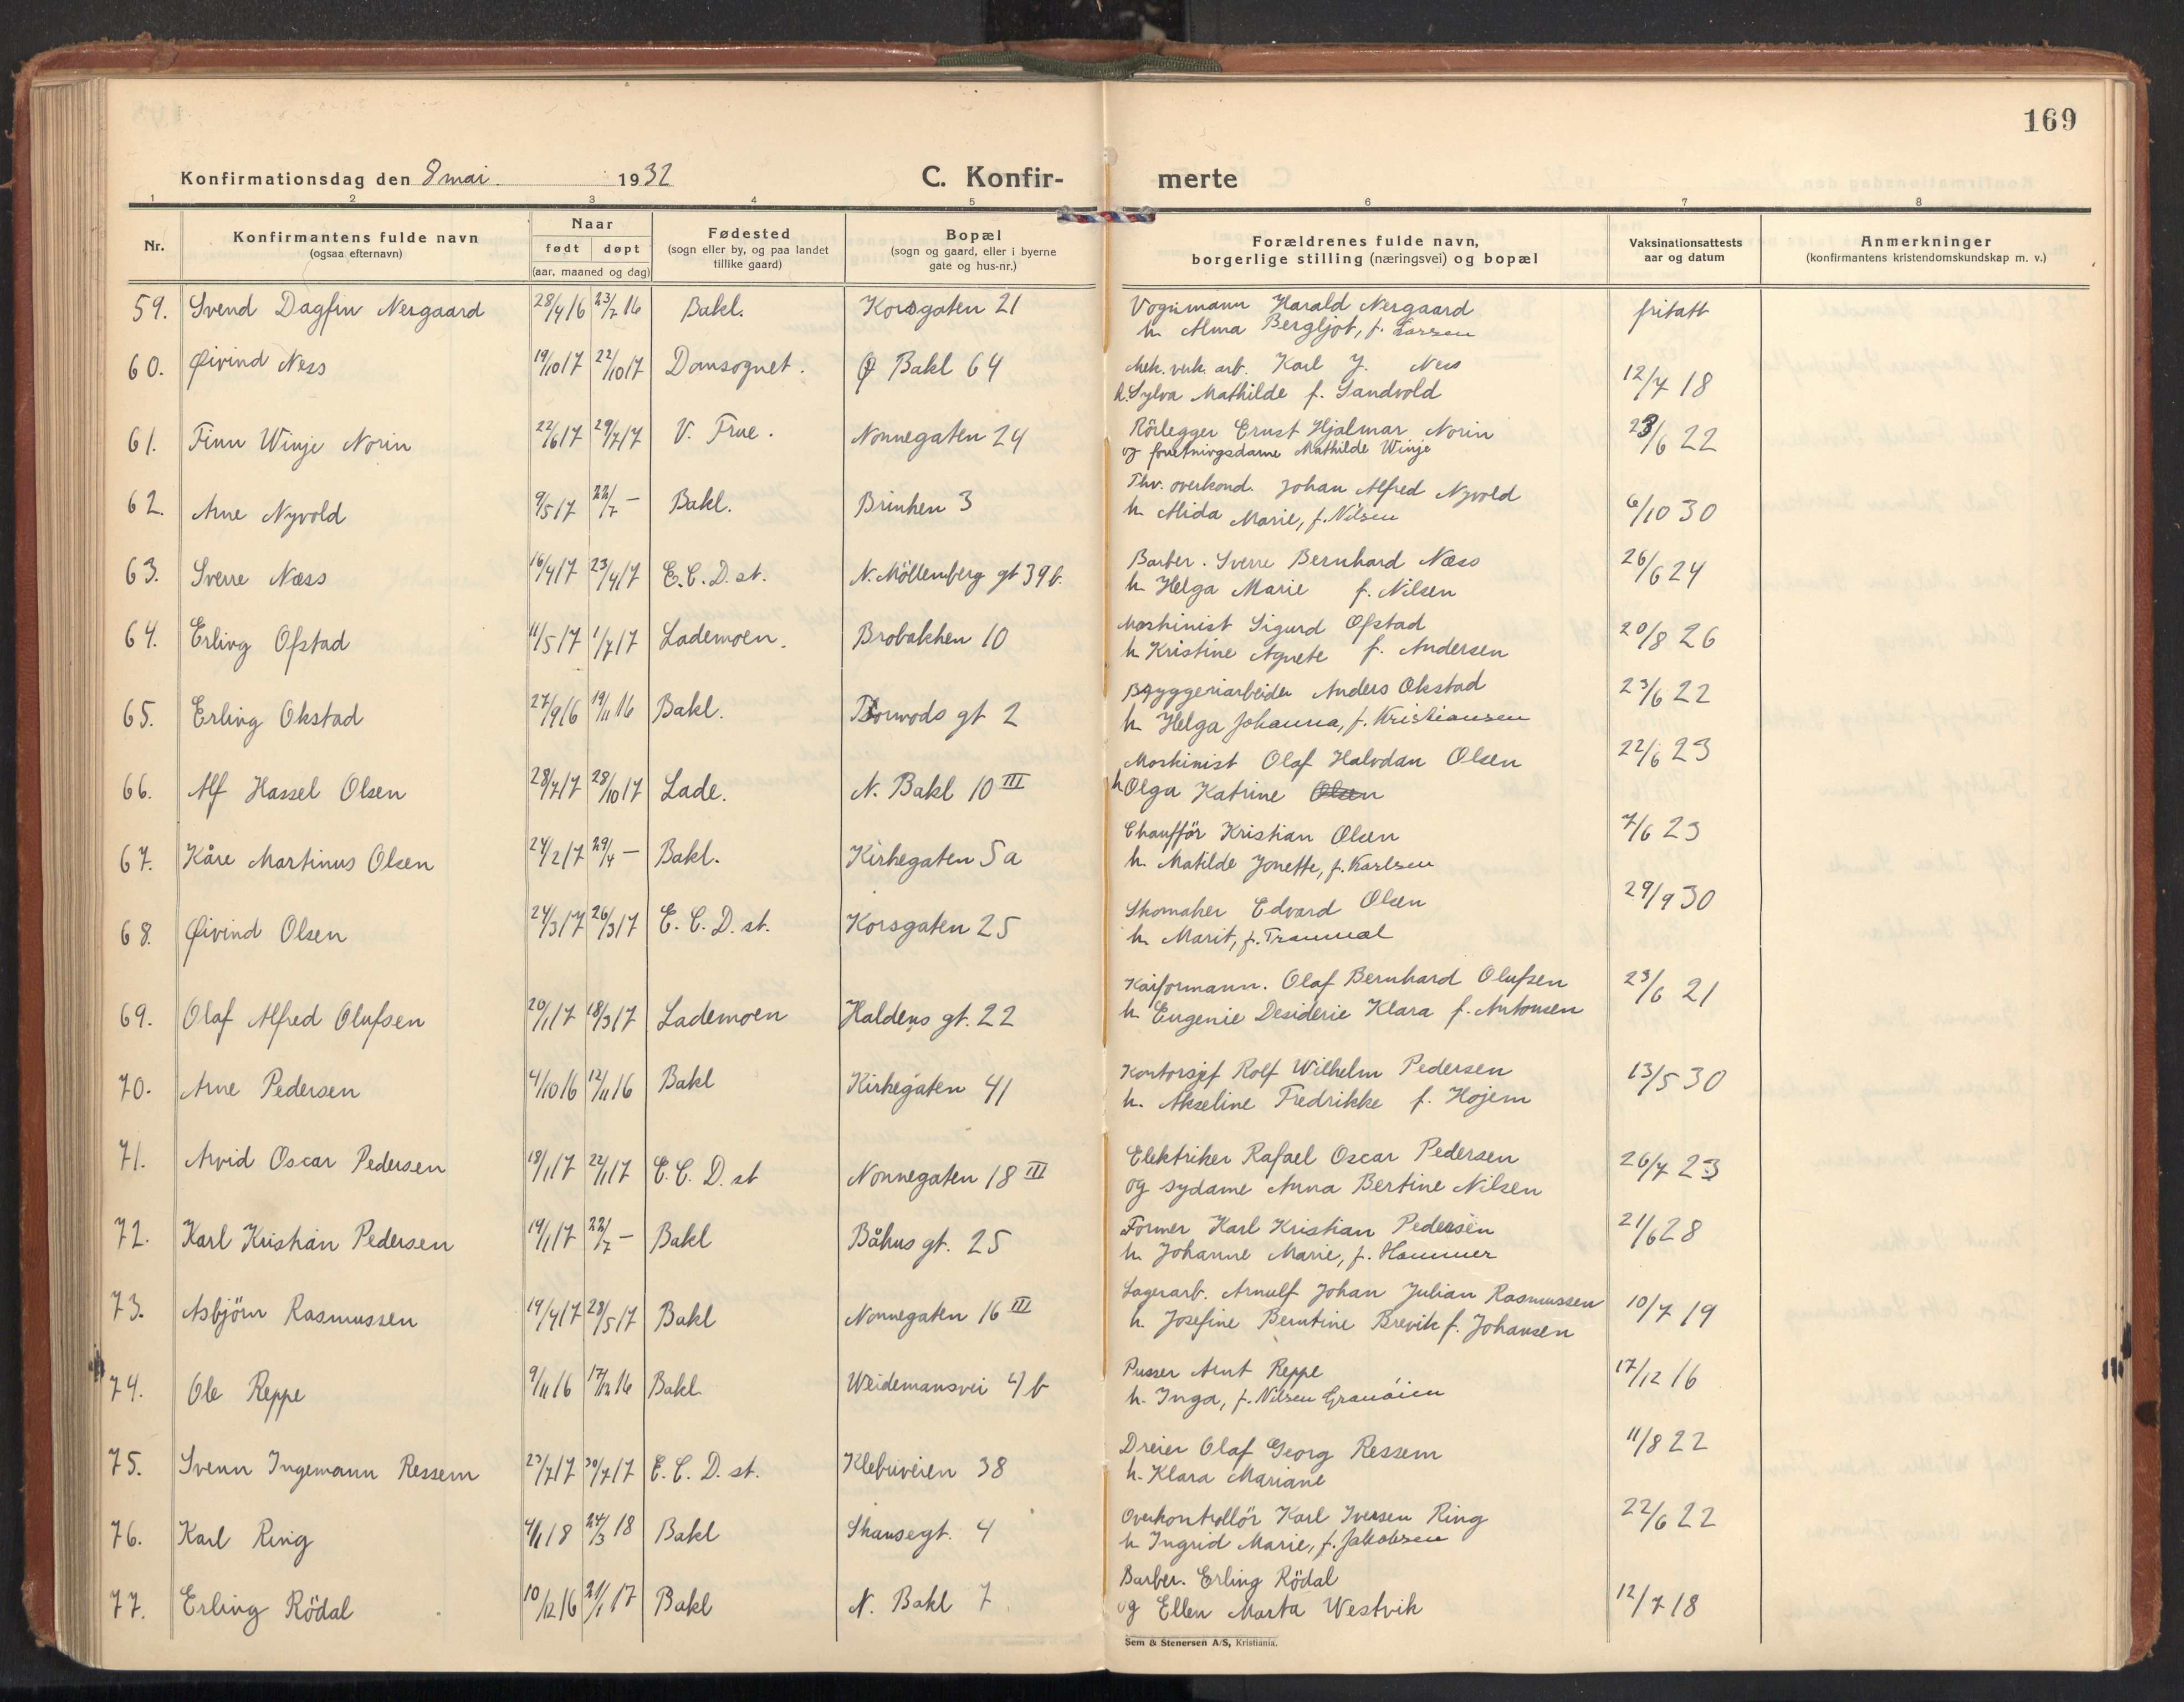 169
Konfirmationsdag den 8 mai. 1932 C. Konfir- merte
1 2 3 4 5 6 7 8
Nr.
Konfirmantens fulde navn
(ogsaa efternavn)
Naar
født døpt
(aar, maaned og dag)
Fødested
(sogn eller by, og paa landet
tillike gaard)
Bopæl
(sogn og gaard, eller i byerne
gate og hus-nr.)
Forældrenes fulde navn,
borgerlige stilling (næringsvei) og bopæl
Vaksinationsattests
aar og datum
Anmerkninger
(konfirmantens kristendomskundskap m. v.)
59. Svend Dagfin Nergaard 28/4 16 23/7 16 Bakl. Korsgaten 21 Vognmann Harald Nergaard fritatt
h. Alma Bergljot, f. Larsen
60. Øivind Ness 19/10 17 22/10 17 Domsognet. Ø Bakl 64 Mek. verk. arb. Karl J. Ness 12/7 18
h. Sylva Mathilde f. Sandvold
61. Finn Winje Norin 22/6 17 29/7 17 V. Frue. Nonnegaten 24 Rörlegger Ernst Hjalmar Norin 23/6 22
og forretningsdame Mathilde Winje
62. Arne Nyvold 9/5 17 22/7 — Bakl. Brinken 3 Thv. overkond. Johan Alfred Nyvold 6/10 30
h. Alida Marie, f. Nilsen
63. Sverre Næss 16/4 17 23/4 17 E.C.D. st. N. Möllenberg gt 39 b. Barber. Sverre Bernhard Næss 26/6 24
h. Helga Marie f. Nilsen
64. Erling Ofstad 11/5 17 1/7 17 Lademoen. Brobakken 10 Maskinist Sigurd Ofstad 20/8 26
h. Kristine Agnete f. Andersen
65. Erling Okstad 27/9 16 19/11 16 Bakl. Tormods gt 2 Bryggeriarbeider Anders Okstad 23/6 22
h. Helga Johanna, f. Kristiansen
66. Alf Hassel Olsen 28/7 17 28/10 17 Lade. N. Bakl 10 III Maskinist Olaf Halvdan Olsen 22/6 23
h Olga Katrine Olsen
67. Kåre Martinus Olsen 24/2 17 29/4 — Bakl. Kirkegaten 5a Chaufför Kristian Olsen 7/6 23
h. Matilde Jonette, f. Karlsen
68. Øivind Olsen 24/3 17 26/3 17 E. C. D. st. Korsgaten 25 Skomaker Edvard Olsen 29/9 30
h. Marit, f. Tranmæl
69. Olaf Alfred Olufsen 20/1 17 18/3 17 Lademoen Haldens gt. 22 Kaiformann. Olaf Bernhard Olufsen 23/6 21
h. Eugenie Desiderie Klara f. Antonsen
70. Arne Pedersen 4/10 16 12/11 16 Bakl Kirkegaten 41 Kontorsjef Rolf Wilhelm Pedersen 13/5 30
h. Akseline Fredrikke f. Hojem
71. Arvid Oscar Pedersen 18/1 17 22/1 17 E. C. D. st Nonnegaten 18 III Elektriker Rafael Oscar Pedersen 26/7 23
og sydame Anna Bertine Nilsen
72. Karl Kristian Pedersen 14/1 17 22/7 — Bakl Båhus gt. 25 Former Karl Kristian Pedersen 21/6 28
h. Johanne Marie, f. Hammer
73. Asbjörn Rasmussen 19/4 17 28/5 17 Bakl Nonnegaten 16 III Lagerarb. Arnulf Johan Julian Rasmussen 10/7 19
h. Josefine Berntine Brevik f. Johansen
74. Ole Reppe 9/11 16 17/12 16 Bakl Weidemansvei 4 b Pusser Arnt Reppe 17/12 16
h. Inga, f. Nilsen Granöien
75. Svenn Ingemann Ressem 23/7 17 30/7 17 E. C. D. st. Klebuveien 38 Dreier Olaf Georg Ressem 11/8 22
h. Klara Mariane
76. Karl Ring 4/1 18 24/3 18 Bakl Skansegt. 4 Overkontrollör Karl Iversen Ring 22/6 22
h Ingrid Marie, f. Jakobsen
77. Erling Rödal 10/12 16 21/1 17 Bakl N. Bakl 7 Barber. Erling Rödal 12/7 18
og Ellen Marta Westvik
Sem & Stenersen A/S, Kristiania.